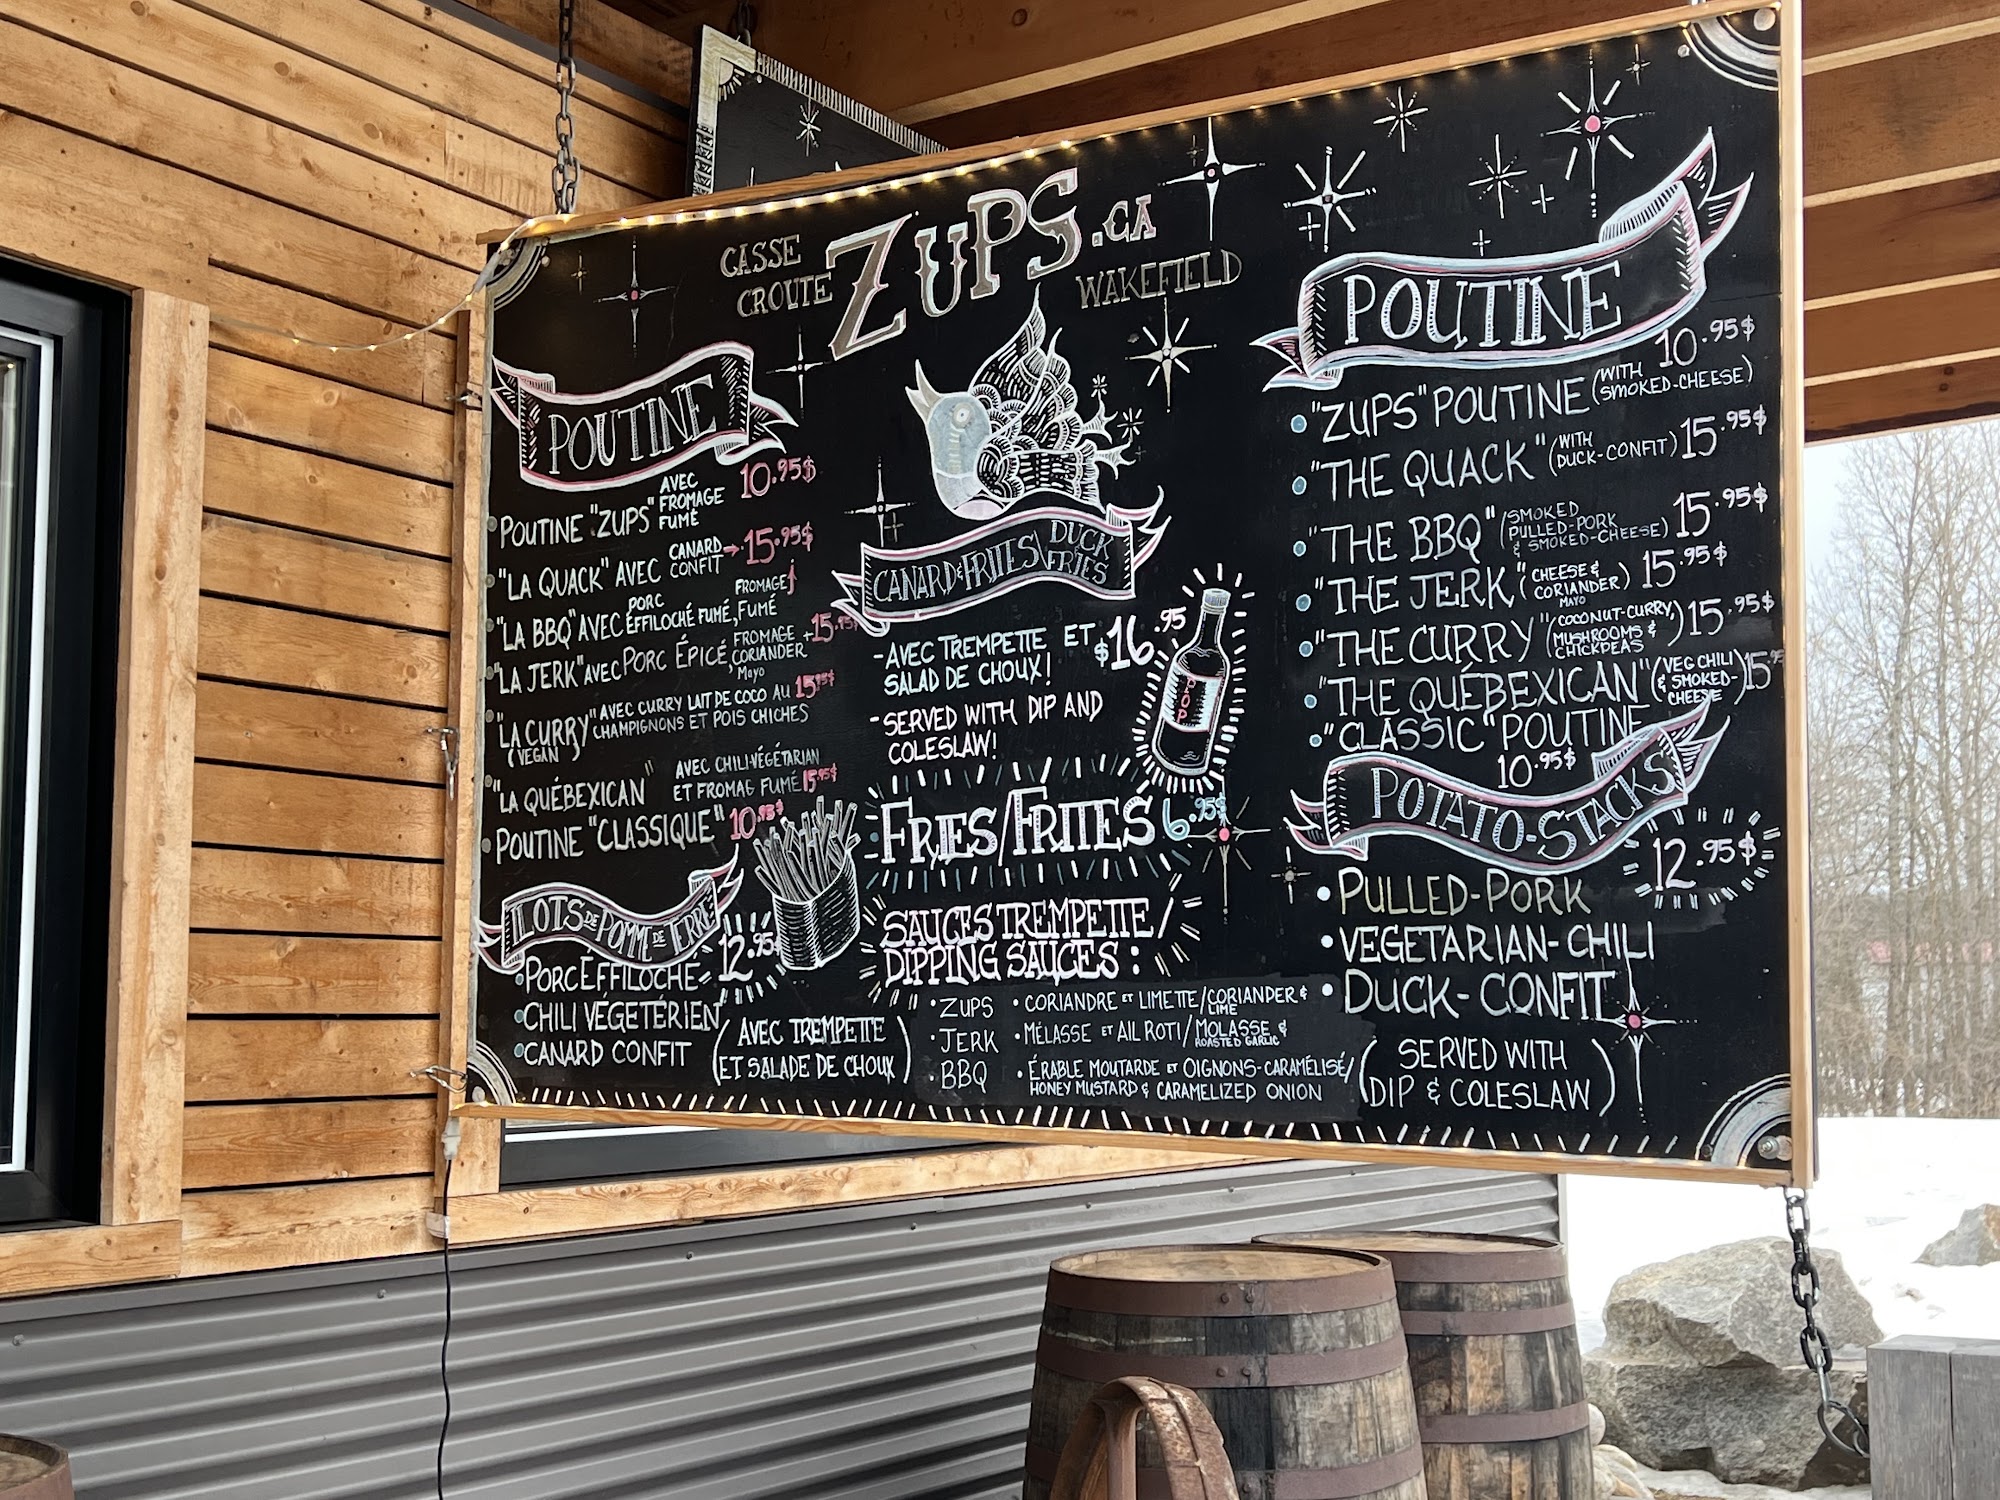 CASSE
CROUTE
ZUPS.CA
WAKEFIELD
POUTINE
POUTINE "ZUPS" AVEC FROMAGE FUMÉ 10.95$
"LA QUACK" AVEC CANARD CONFIT → 15.95$
"LA BBQ" AVEC PORC EFFILOCHÉ FUMÉ, FROMAGE FUMÉ
"LA JERK" AVEC PORC ÉPICÉ, FROMAGE, CORIANDER MAYO 15.95$
"LA CURRY" AVEC CURRY LAIT DE COCO AU 15.95$
CHAMPIGNONS ET POIS CHICHES
(VEGAN)
"LA QUÉBEXICAN" AVEC CHILI-VÉGÉTARIAN
ET FROMAG FUMÉ 15.95$
POUTINE "CLASSIQUE" 10.95$
ILOTS DE POMME DE TERRE
12.95
PORC EFFILOCHÉ
CHILI VÉGETÉRIEN
CANARD CONFIT
(AVEC TREMPETTE
ET SALADE DE CHOUX)
CANARD & FRITES\ DUCK & FRIES
-AVEC TREMPETTE ET
SALAD DE CHOUX!
$16.95
-SERVED WITH DIP AND
COLESLAW!
FRIES/FRITES 6.95$
SAUCES TREMPETTE/
DIPPING SAUCES:
• ZUPS • CORIANDRE ET LIMETTE/CORIANDER & LIME
• JERK • MÉLASSE ET AIL ROTI/MOLASSE & ROASTED GARLIC
• BBQ • ÉRABLE MOUTARDE ET OIGNONS-CARAMÉLISÉ/
HONEY MUSTARD & CARAMELIZED ONION
POUTINE
"ZUPS" POUTINE (WITH SMOKED-CHEESE) 10.95$
"THE QUACK" (WITH DUCK-CONFIT) 15.95$
"THE BBQ" (SMOKED PULLED-PORK & SMOKED-CHEESE) 15.95$
"THE JERK" (CHEESE & CORIANDER MAYO) 15.95$
"THE CURRY" (COCONUT-CURRY, MUSHROOMS & CHICKPEAS) 15.95$
"THE QUÉBEXICAN" (VEG CHILI & SMOKED-CHEESE) 15.95
"CLASSIC" POUTINE
10.95$
POTATO-STACKS
12.95$
• PULLED-PORK
• VEGETARIAN-CHILI
• DUCK-CONFIT
(SERVED WITH
DIP & COLESLAW)